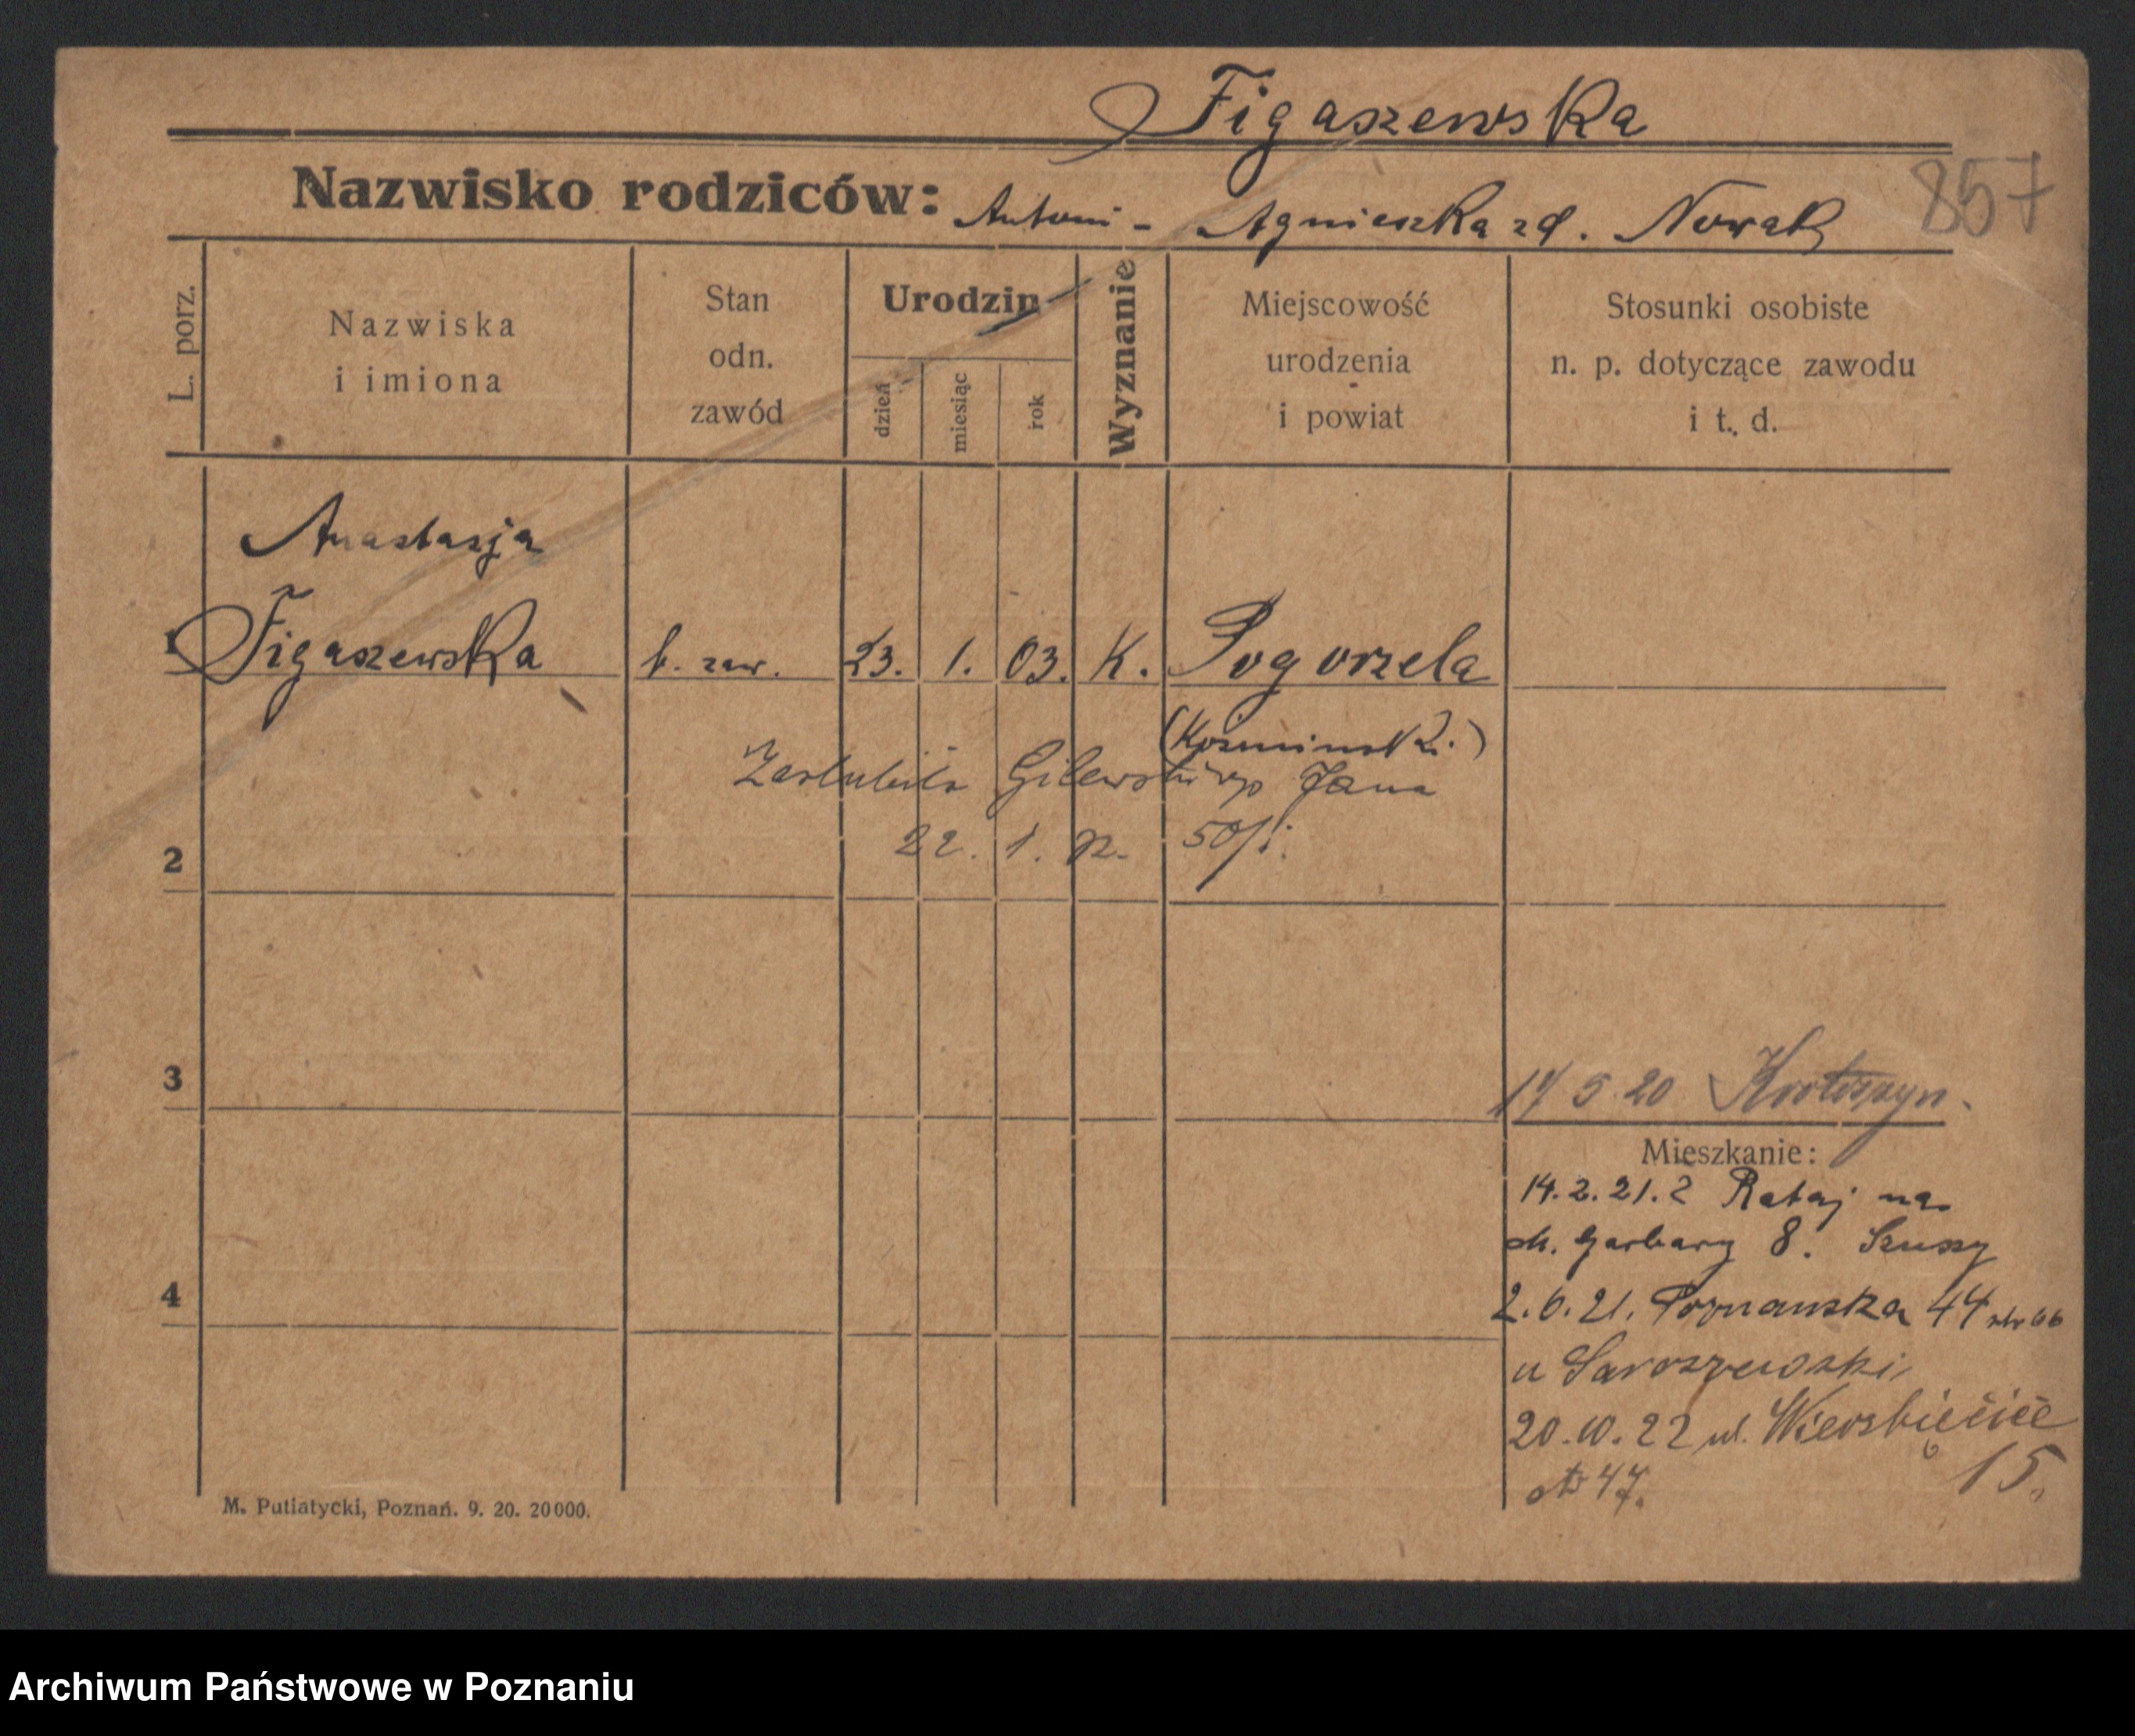 Figaszewska
857
Nazwisko rodziców: Antoni - Agnieszka zd. Nowak
L. porz.
Nazwiska
i imiona
Stan
odn.
zawód
Urodzin
dzień
miesiąc
rok
Wyznanie
Miejscowość
urodzenia
i powiat
Stosunki osobiste
n. p. dotyczące zawodu
i t. d.
Anastazja
1 Figaszewska b. zaw. 23. 1. 03. K. Pogorzela
(Koźmiński.)
Zaślubiła Gilewskiego Jana
2 22. 1. 50/
3
17/5 20 Krotoszyn.
Mieszkanie:
14.2.21. z Rataj na
Garbary 8.
4
2.6.21. Poznańska 44 66
u
20.10.22 ul. Wierzbięcice
15.
47.
M. Putiatycki, Poznań. 9. 20. 20000.
Archiwum Państwowe w Poznaniu